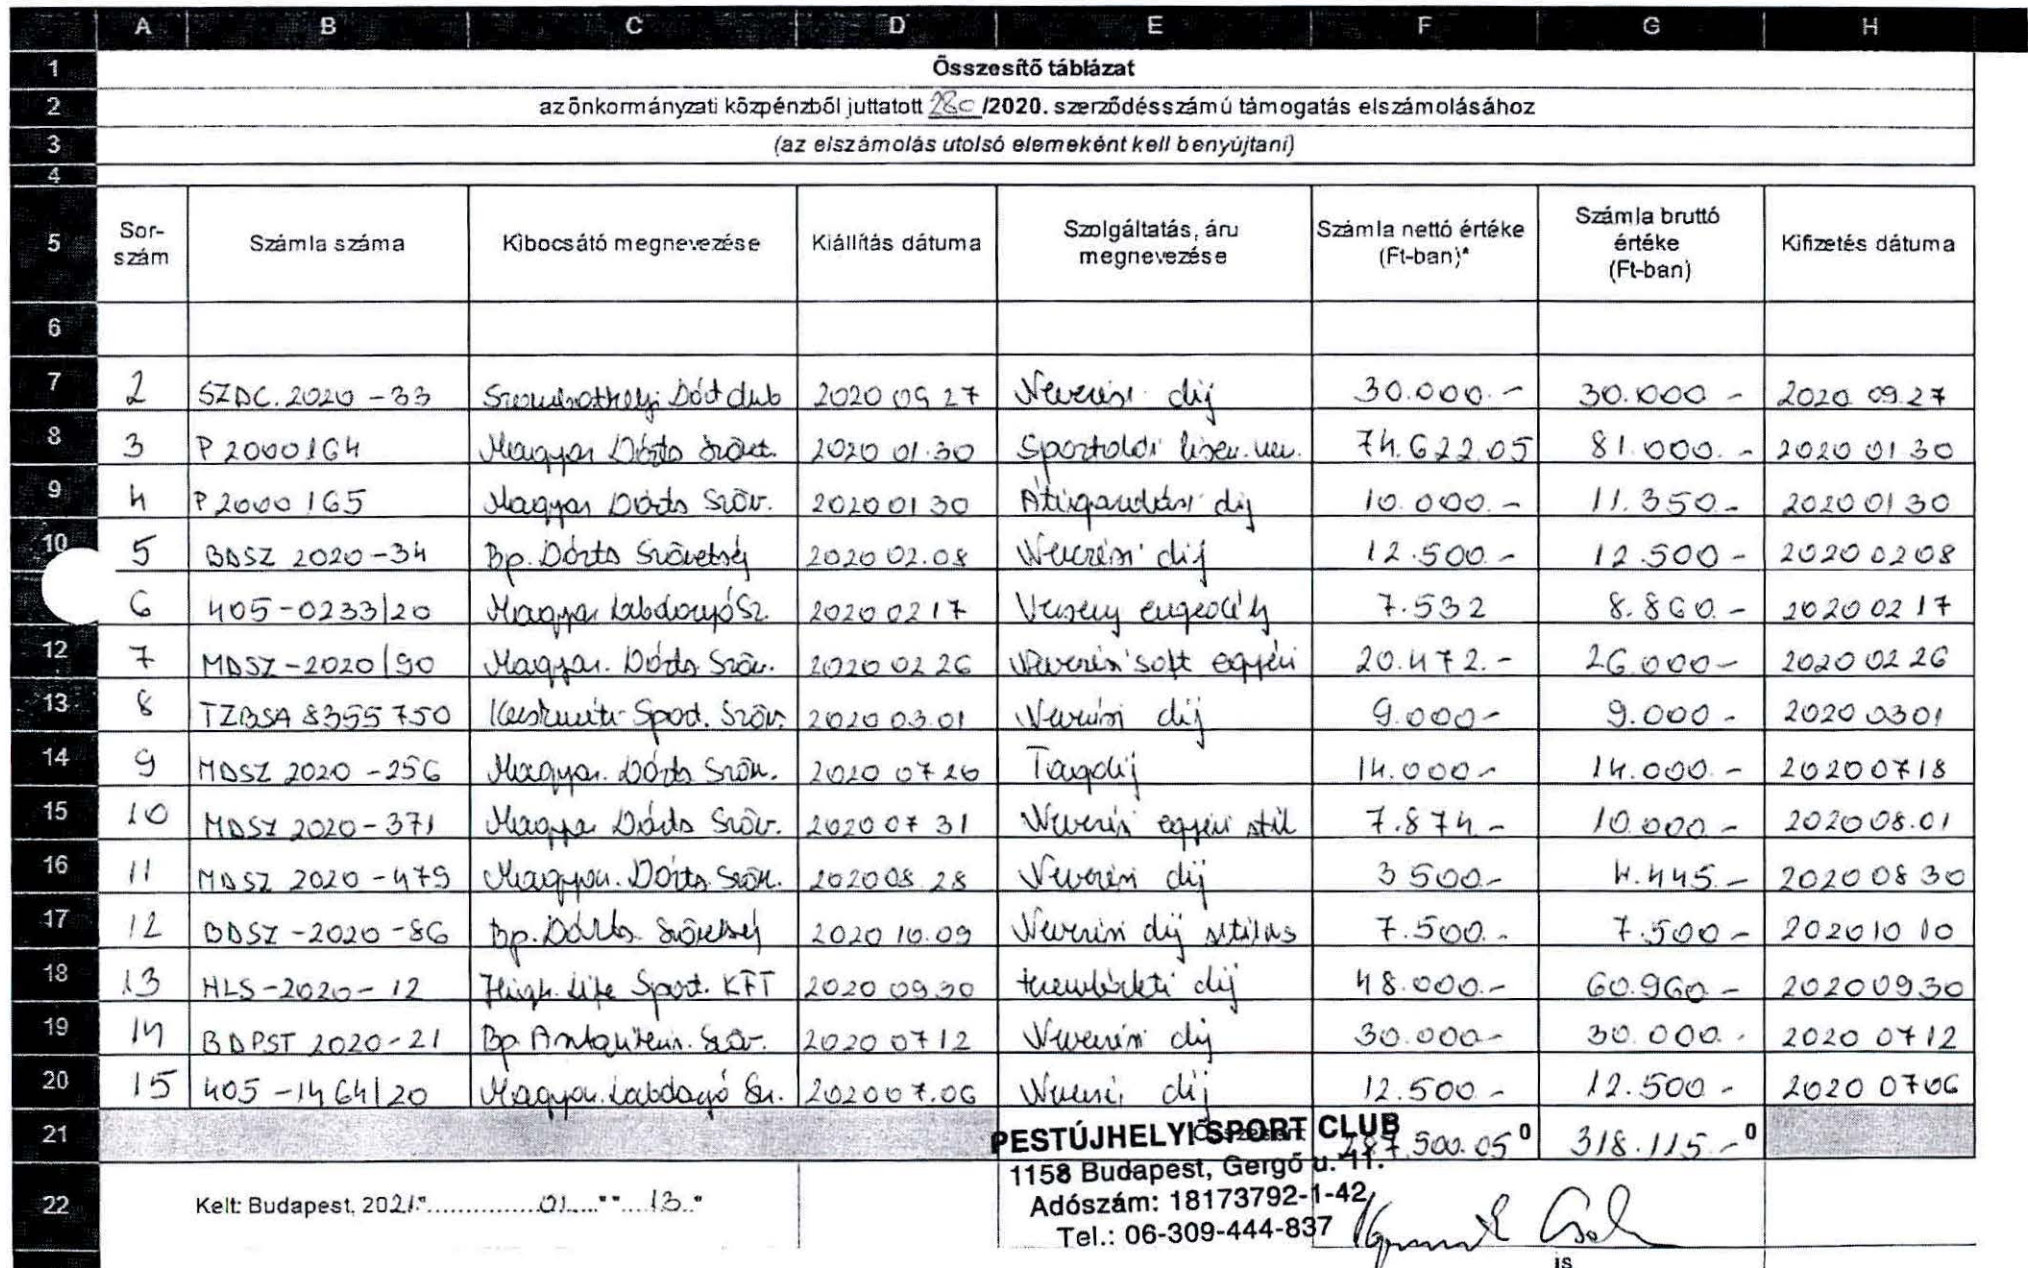 A B C D E F G H
1 Összesítő táblázat
2 az önkormányzati közpénzből juttatott 280 /2020. szerződésszámú támogatás elszámolásához
3 (az elszámolás utolsó elemeként kell benyújtani)
4
5 Sor-szám Számla száma Kibocsátó megnevezése Kiállítás dátuma Szolgáltatás, áru megnevezése Számla nettó értéke (Ft-ban)* Számla bruttó értéke (Ft-ban) Kifizetés dátuma
6
7 2 SZDC.2020-33 Szombathelyi Dárt club 2020 09 27 Nevezési díj 30.000.- 30.000 - 2020 09.27
8 3 P2000164 Magyar Dárts Szövet. 2020 01.30 Sportolói 74.622.05 81.000.- 2020 01 30
9 4 P2000165 Magyar Dárts Szöv. 2020 01 30 Átigazolási díj 10.000.- 11.350.- 2020 01 30
10 5 BDSZ 2020-34 Bp. Dárts Szövetség 2020 02.08 Nevezési díj 12.500.- 12.500 - 2020 02 08
6 405-0233/20 Magyar Labdarúgó Sz. 2020 02 17 Verseny engedély 7.532 8.860.- 2020 02 17
12 7 MDSZ-2020/90 Magyar. Dárts Szöv. 2020 02 26 Nevezés soft egyéni 20.472.- 26.000- 2020 02 26
13 8 TZBSA 8355750 Sport. Szöv. 2020 03.01 Nevezési díj 9.000- 9.000 - 2020 0301
14 9 MDSZ 2020-256 Magyar. Dárts Szöv. 2020 07 20 Tagdíj 14.000- 14.000.- 2020 0718
15 10 MDSZ 2020-371 Magyar Dárts Szöv. 2020 07 31 Nevezés egyéni 7.874- 10.000- 2020 08.01
16 11 MDSZ 2020-479 Magyar. Dárts Szöv. 2020 08 28 Nevezési díj 3 500- 4.445.- 2020 08 30
17 12 BDSZ-2020-86 Bp. Dárts Szövetség 2020 10.09 Nevezési díj stílus 7.500.- 7.500- 2020 10 10
18 13 HLS-2020-12 High Life Sport. KFT 2020 09.30 terembérleti díj 48.000.- 60.960- 2020 09 30
19 14 BDPST 2020-21 Bp. Asztalitenisz. Szöv. 2020 07 12 Nevezési díj 30.000- 30.000.- 2020 07 12
20 15 405-1464/20 Magyar Labdarúgó Sz. 2020 07.06 Nevezési díj 12.500 - 12.500 - 2020 0706
21 287.500.05 0 318.115.- 0
PESTÚJHELYI SPORT CLUB
1158 Budapest, Gergő u. 11.
22 Kelt: Budapest, 2021.".................01....." "....13.."
Adószám: 18173792-1-42
Tel.: 06-309-444-837